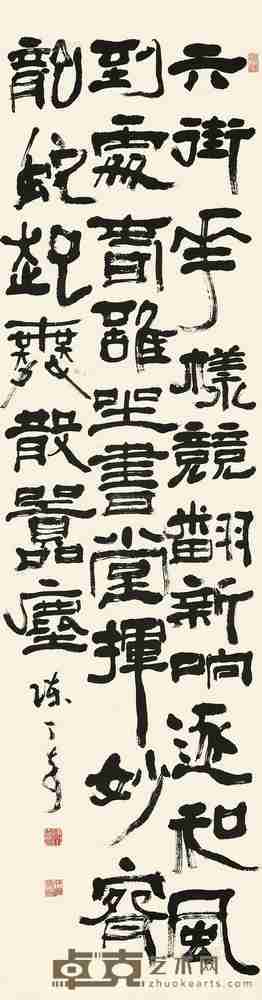 六街年樣競翻新响逐和風
到處坐書堂揮妙
龍蛇起舞散囂塵
陳丁奇
卓克艺术网
zhuokearts.com